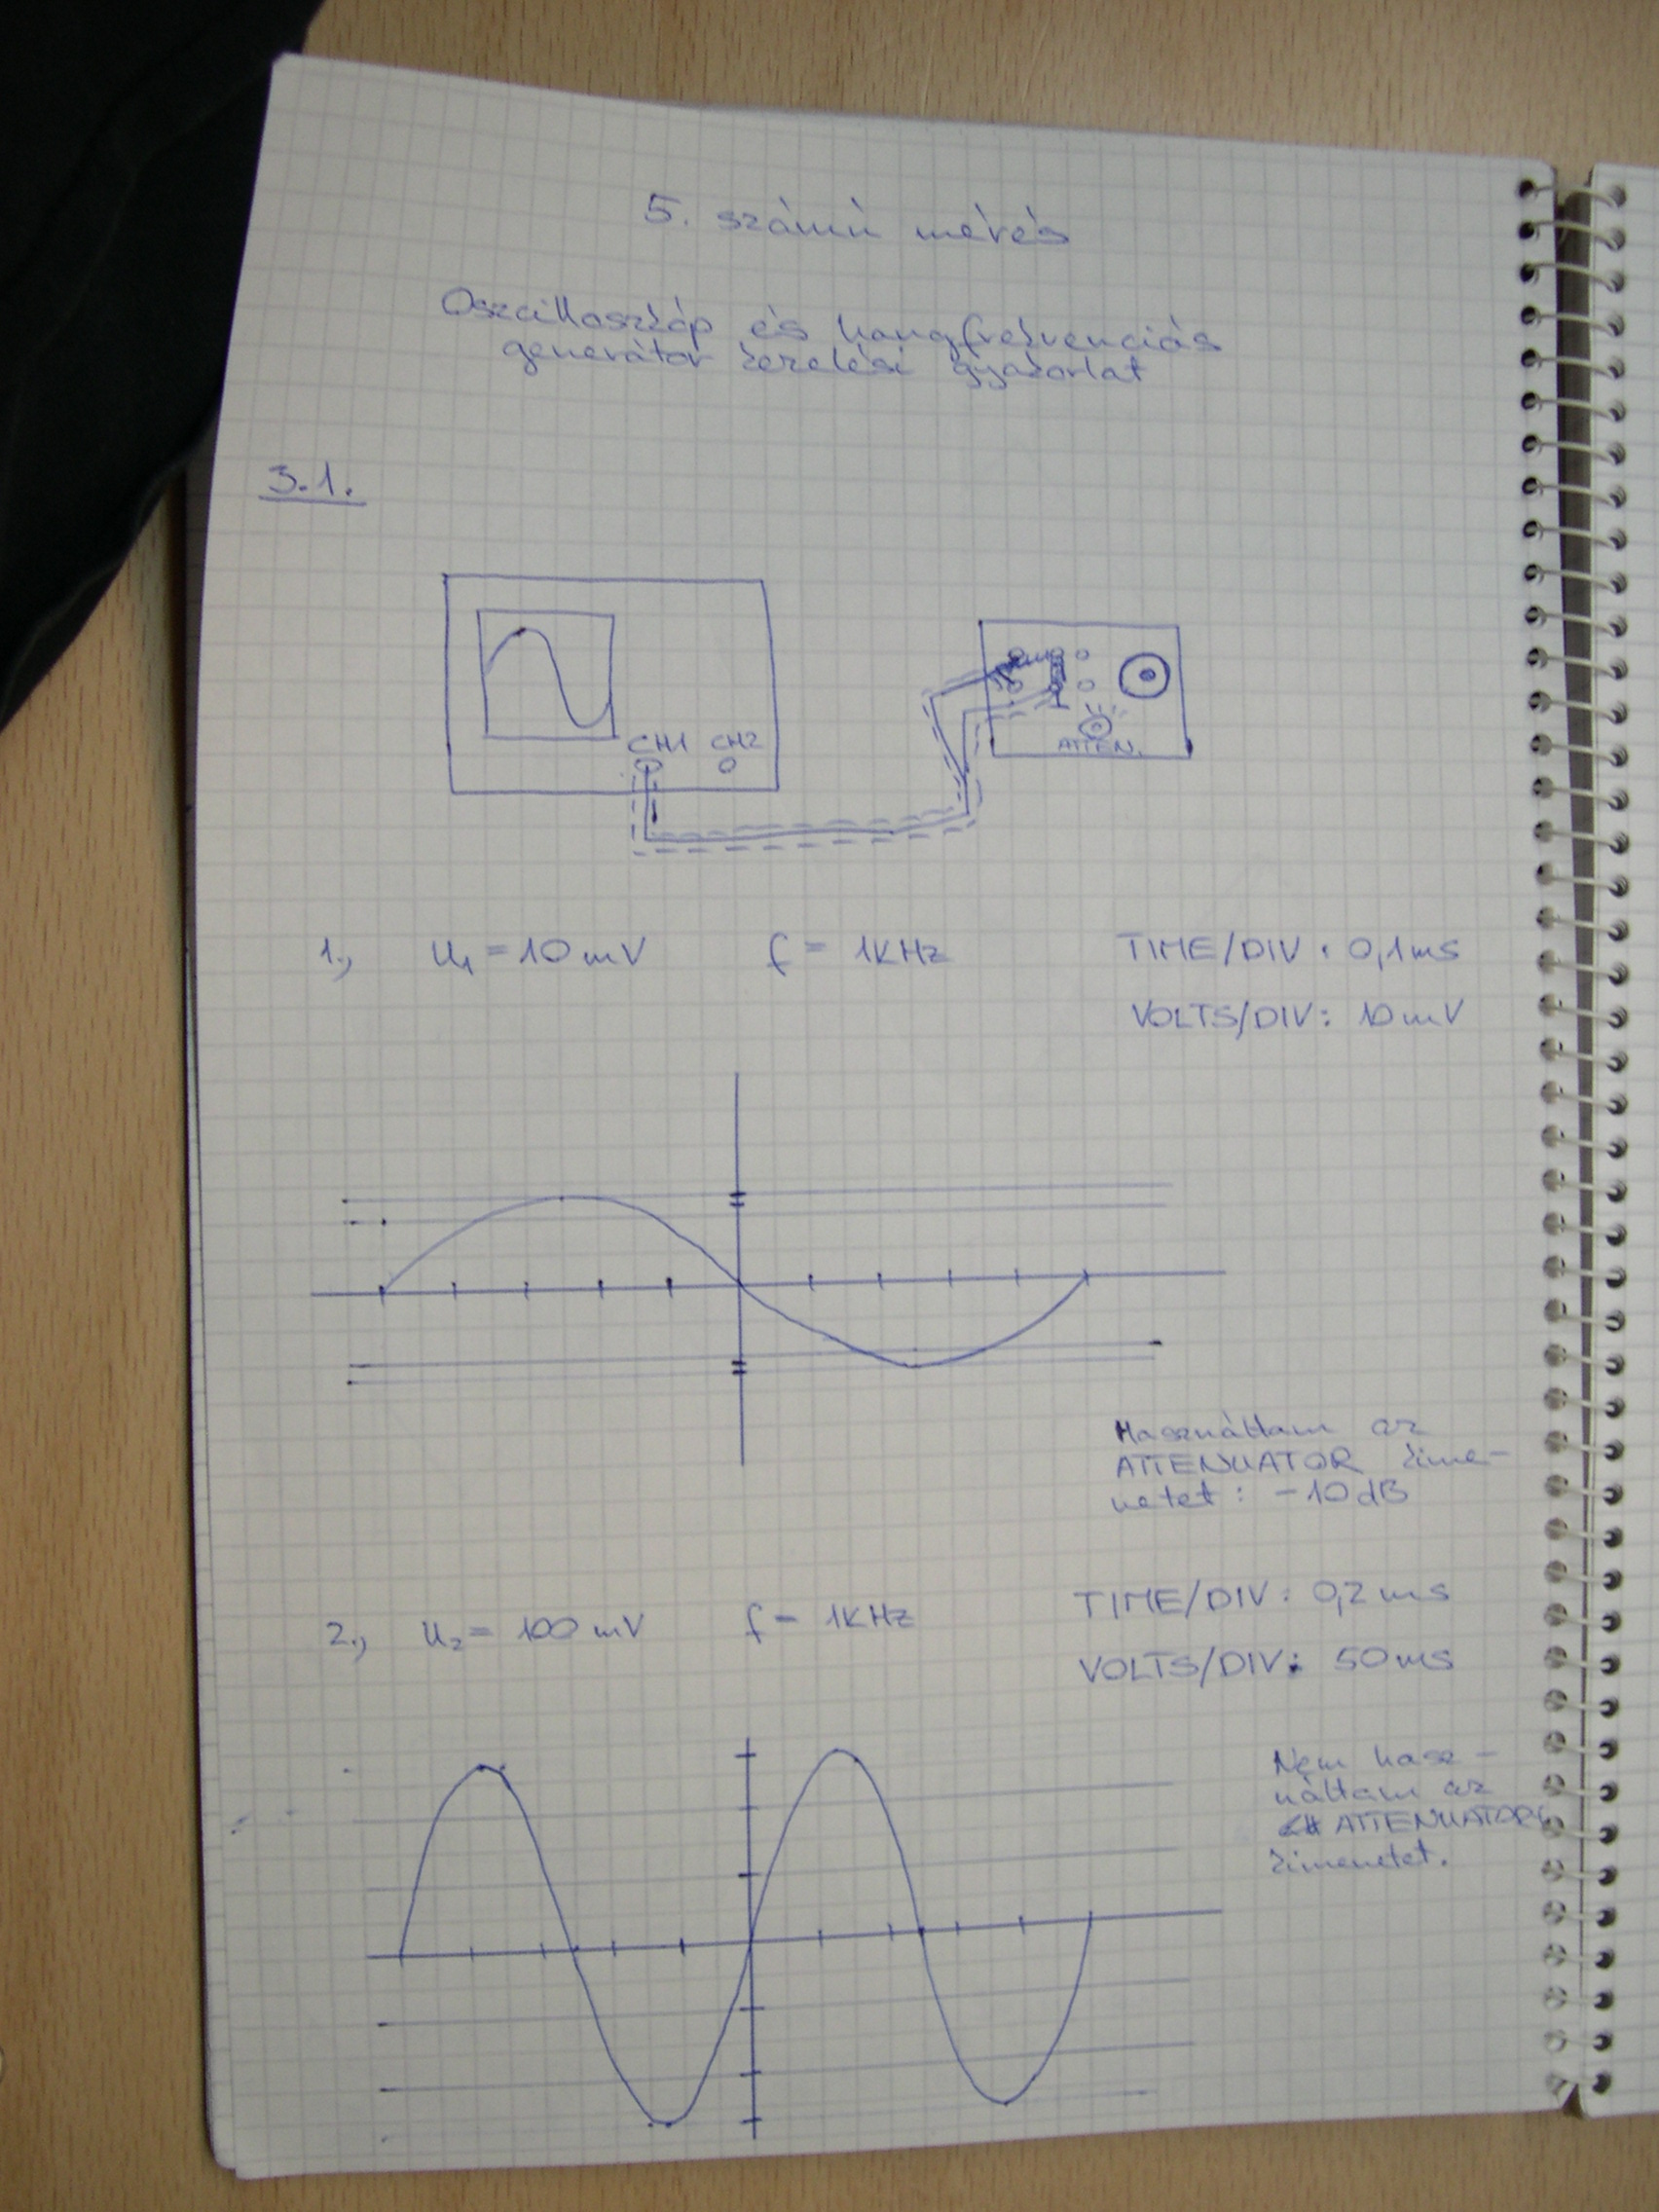 5. számú mérés
Oszcilloszkóp és hangfrekvenciás
generátor kezelési gyakorlat
3.1.
CH1 CH2
ATTEN.
1., U₁ = 10 mV f = 1KHz TIME/DIV : 0,1ms
VOLTS/DIV: 10 mV
Használtam az
ATTENUATOR kime-
netet : -10 dB
2., U₂ = 100 mV f = 1KHz TIME/DIV : 0,2 ms
VOLTS/DIV: 50 ms
Nem hasz-
náltam az
ATTENUATOR
kimenetet.